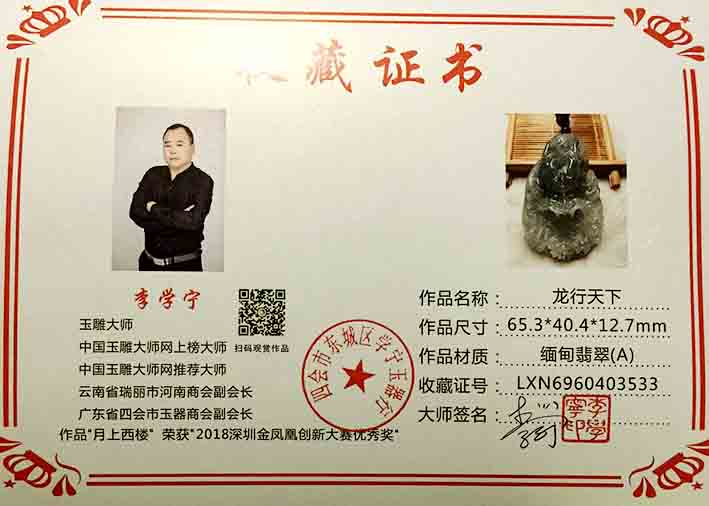 收藏证书
李学宁
玉雕大师
中国玉雕大师网上榜大师
中国玉雕大师网推荐大师
云南省瑞丽市河南商会副会长
广东省四会市玉器商会副会长
作品"月上西楼" 荣获"2018深圳金凤凰创新大赛优秀奖"
扫码观赏作品
四会市东城区学宁玉器行
作品名称： 龙行天下
作品尺寸： 65.3*40.4*12.7mm
作品材质： 缅甸翡翠(A)
收藏证号： LXN6960403533
大师签名：
李學寧印